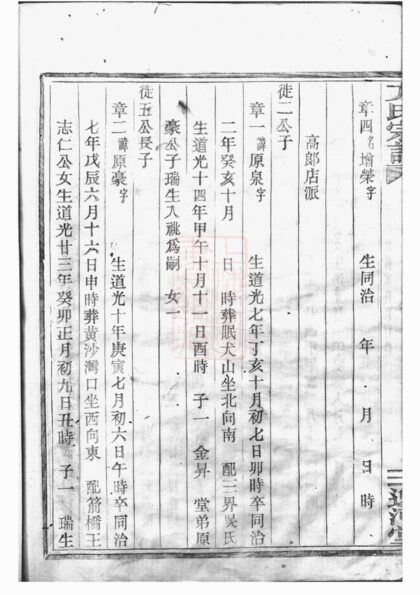 氏家譜
章四名增榮字 生同治 年 月 日 時
高郎店派
徒二公子
章一諱原泉字 生道光七年丁亥十月初七日卯時卒同治
二年癸亥十月 日 時葬眠犬山坐北向南 配三界吴氏
生道光十四年甲午十月十一日酉時 子一 金昇 堂弟原
豪公子瑞生入祧爲嗣 女一
徒五公長子
章二諱原豪字 生道光十年庚寅七月初六日午時卒同治
七年戊辰六月十六日申時葬黄沙灣口坐西向東 配箭橋王
志仁公女生道光廿三年癸卯正月初九日丑時 子一 瑞生